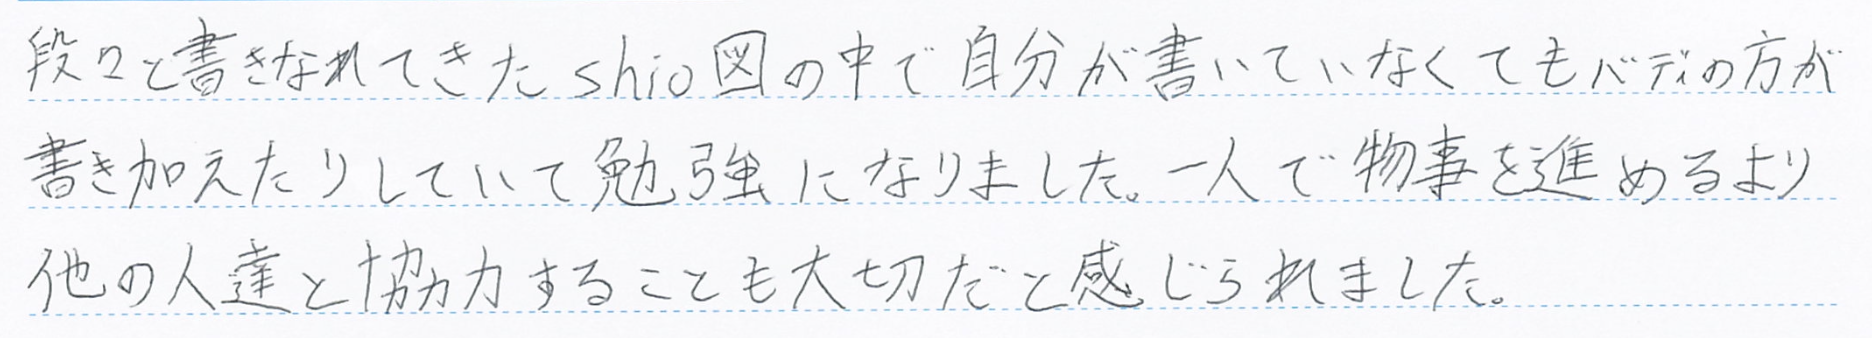 段々と書きなれてきたshio図の中で自分が書いていなくてもバディの方が
書き加えたりしていて勉強になりました。一人で物事を進めるより
他の人達と協力することも大切だと感じられました。